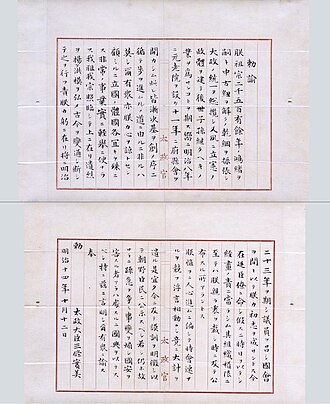 勅諭
朕祖宗二千五百有餘年ノ鴻緒ヲ
嗣キ中古紐ヲ解クノ乾綱ヲ振張シ
大政ノ統一ヲ總攬シ又夙ニ立憲ノ
政體ヲ建テ後世子孫繼クヘキノ
業ヲ爲サンコトヲ期ス嚮ニ明治八年
ニ元老院ヲ設ケ十一年ニ府縣會ヲ
開カシム此レ皆漸次基ヲ創メ序ニ
循テ歩ヲ進ムルノ道ニ由ルニ非サルハ
莫シ爾有衆亦朕カ心ヲ諒トセン
顧ミルニ立國ノ體國各宜キヲ殊ニ
ス非常ノ事業實ニ輕擧ニ便ナラ
ス我祖我宗照臨シテ上ニ在リ遺烈
ヲ揚ケ洪模ヲ弘メ古今ヲ變通シ斷シ
テ之ヲ行フ責朕カ躬ニ在リ將ニ明治
太政官
二十三年ヲ期シ議員ヲ召シ國會
ヲ開キ以テ朕カ初志ヲ成サントス今
在廷臣僚ニ命シ假スニ時日ヲ以テシ
經畫ノ責ニ當ラシム其組織權限ニ
至テハ朕親ラ衷ヲ裁シ時ニ及テ公
布スル所アラントス
朕惟フニ人心進ムニ偏シテ時會速ナ
ルヲ競フ浮言相動カシ竟ニ大計ヲ
遺ル是レ宜シク今ニ及テ謨訓ヲ明徴シ以
テ朝野臣民ニ公示スヘシ若シ仍ホ故
サラニ躁急ヲ爭ヒ事變ヲ煽シ國安ヲ
害スル者アラハ處スルニ國典ヲ以テス
ヘシ特ニ茲ニ言明シ爾有衆ニ諭ス
奉
勅 太政大臣三條實美
明治十四年十月十二日
太政官